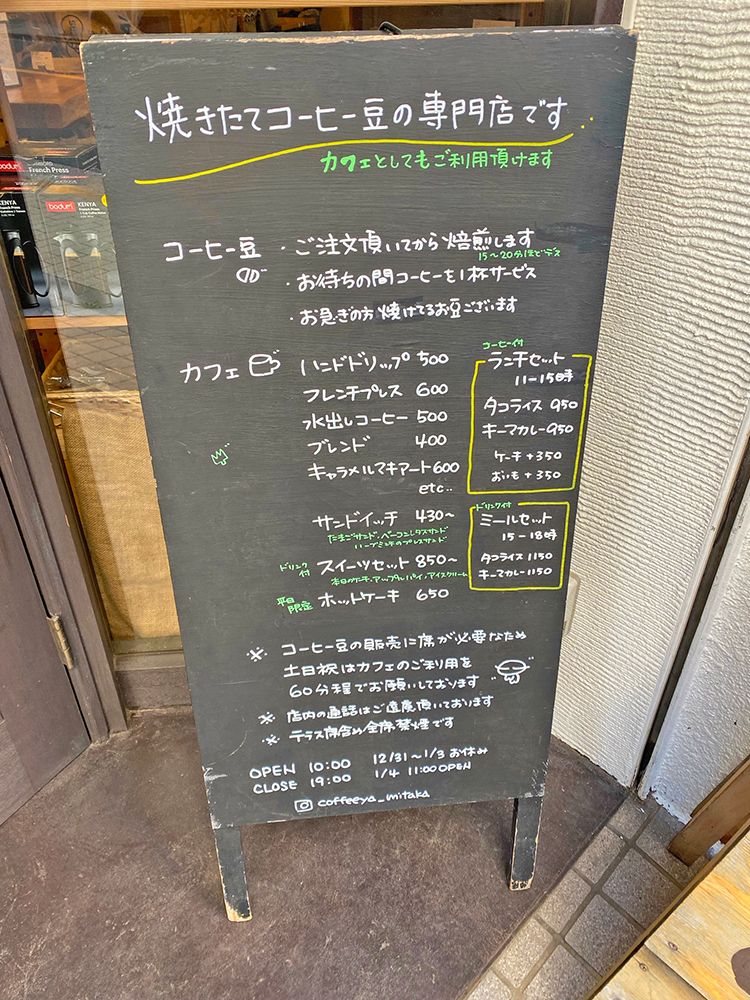 焼きたてコーヒー豆の専門店です
カフェとしてもご利用頂けます
コーヒー豆
・ご注文頂いてから焙煎します
15〜20分ほどデス
・お待ちの間コーヒーを1杯サービス
・お急ぎの方 焼けてるお豆ございます
カフェ
ハンドドリップ 500
フレンチプレス 600
水出しコーヒー 500
ブレンド 400
キャラメルマキアート 600
etc..
サンドイッチ 430〜
たまごサンド・ベーコンレタスサンド
ドリンク付 スイーツセット 850〜
本日のケーキ・アップルパイ・アイスクリーム
平日限定 ホットケーキ 650
コーヒー付
ランチセット
11-15時
タコライス 950
キーマカレー 950
ケーキ +350
おいも +350
ドリンク付
ミールセット
15-18時
タコライス 1150
キーマカレー 1150
※ コーヒー豆の販売に席が必要なため
土日祝はカフェのご利用を
60分程でお願いしております
※ 店内の通話はご遠慮頂いております
※ テラス席含め全席禁煙です
OPEN 10:00 12/31〜1/3 お休み
CLOSE 19:00 1/4 11:00 OPEN
coffeeya_mitaka
bodum
French Press
KENYA
bodum
KENYA
French Press